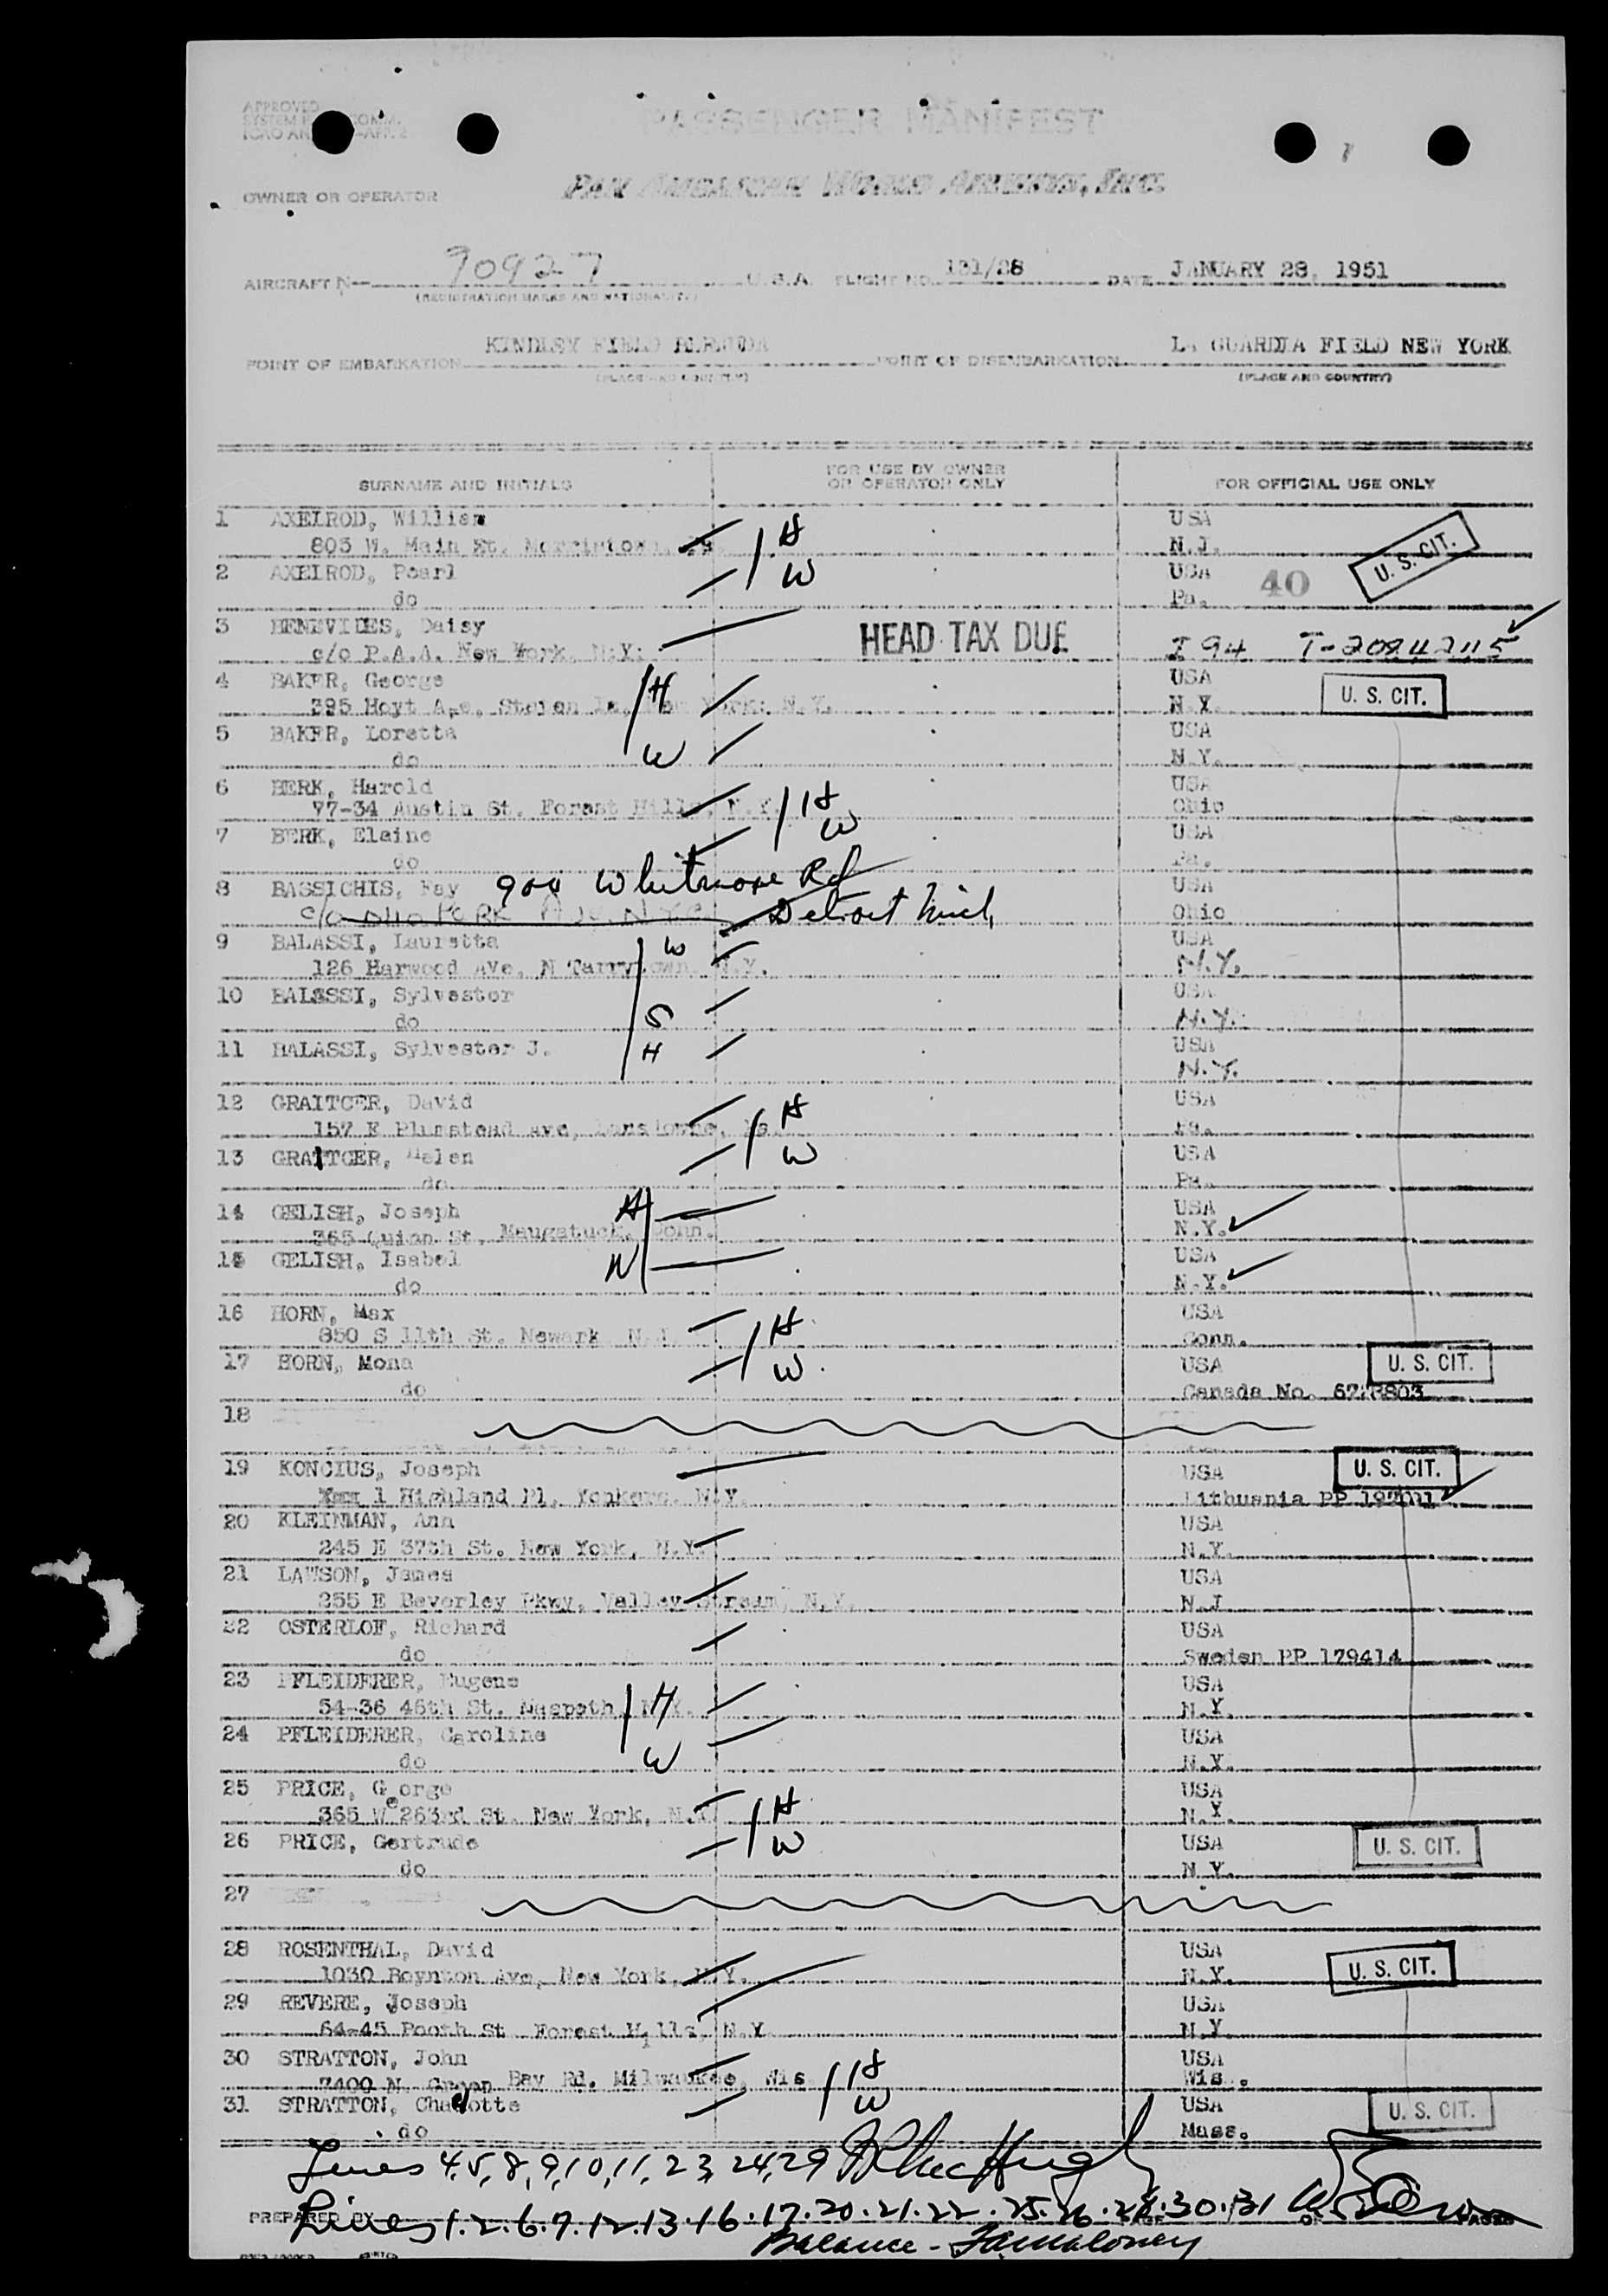 APPROVED
PASSENGER MANIFEST
OWNER OR OPERATOR PAN AMERICAN WORLD AIRWAYS, INC.
AIRCRAFT N 90927 U.S.A. FLIGHT NO. 131/28 DATE JANUARY 28, 1951
(REGISTRATION MARKS AND NATIONALITY)
POINT OF EMBARKATION KINDLEY FIELD BERMUDA POINT OF DISEMBARKATION LA GUARDIA FIELD NEW YORK
(PLACE AND COUNTRY) (PLACE AND COUNTRY)
SURNAME AND INITIALS FOR USE BY OWNER OR OPERATOR ONLY FOR OFFICIAL USE ONLY
1 AXELROD, William H USA
803 W. Main St. Norristown, Pa. N.J. U. S. CIT.
2 AXELROD, Pearl W USA 40
do Pa.
3 BENEVIDES, Daisy HEAD TAX DUE
c/o P.A.A. New York, N.Y. I 94 T-2084245
4 BAKER, George H USA
395 Hoyt Ave, Staten Is, New York, N.Y. N.Y. U. S. CIT.
5 BAKER, Loretta USA
do W N.Y.
6 BERK, Harold USA
77-34 Austin St. Forest Hills, N.Y. H Ohio
7 BERK, Elaine W USA
do Pa.
8 BASSICHIS, Fay 904 Whitmore Rd USA
c/o PARK AVE. N.Y.C. Detroit Mich, Ohio
9 BALASSI, Lauretta W USA
126 Harwood Ave, N Tarrytown, N.Y. N.Y.
10 BALASSI, Sylvester USA
do S N.Y.
11 BALASSI, Sylvester J. H USA
N.Y.
12 GRAITCER, David H USA
157 E Plumstead ave, Lansdowne, Pa. Pa.
13 GRAITCER, Helen W USA
do Pa.
14 GELISH, Joseph H USA
365 Quinn St, Naugatuck, Conn. N.Y.
15 GELISH, Isabel W USA
do N.Y.
16 HORN, Max H USA
850 S 11th St. Newark N.J. Conn.
17 HORN, Mona W USA U. S. CIT.
do Canada No.
18
19 KONCIUS, Joseph USA U. S. CIT.
1 Highland Pl, Yonkers, N.Y. Lithuania PP
20 KLEINMAN, Ann USA
245 E 37th St. New York, N.Y. N.Y.
21 LAWSON, James USA
255 E Beverley Pkwy, Valley Stream, N.Y. N.J
22 OSTERLOF, Richard USA
do Sweden PP 179414
23 PFLEIDERER, Eugene H USA
54-36 46th St. Maspeth, N.Y. N.Y.
24 PFLEIDERER, Caroline W USA
do N.Y.
25 PRICE, George H USA
365 W 263rd St. New York, N.Y. N.Y.
26 PRICE, Gertrude W USA U. S. CIT.
do N.Y.
27
28 ROSENTHAL, David USA
1030 Boynton Ave, New York, N.Y. N.Y. U. S. CIT.
29 REVERE, Joseph USA
64-45 Booth St Forest Hills, N.Y. N.Y.
30 STRATTON, John H USA
7400 N. Green Bay Rd. Milwaukee, Wis. Wis.
31 STRATTON, Charlotte W USA U. S. CIT.
do Mass.
Lines 4,5, 8, 9, 10, 11, 23, 24, 29
PREPARED BY
Lines 1.2.6.7.12.13.16.17.20.21.22.25.26.28.30.31
Balance -